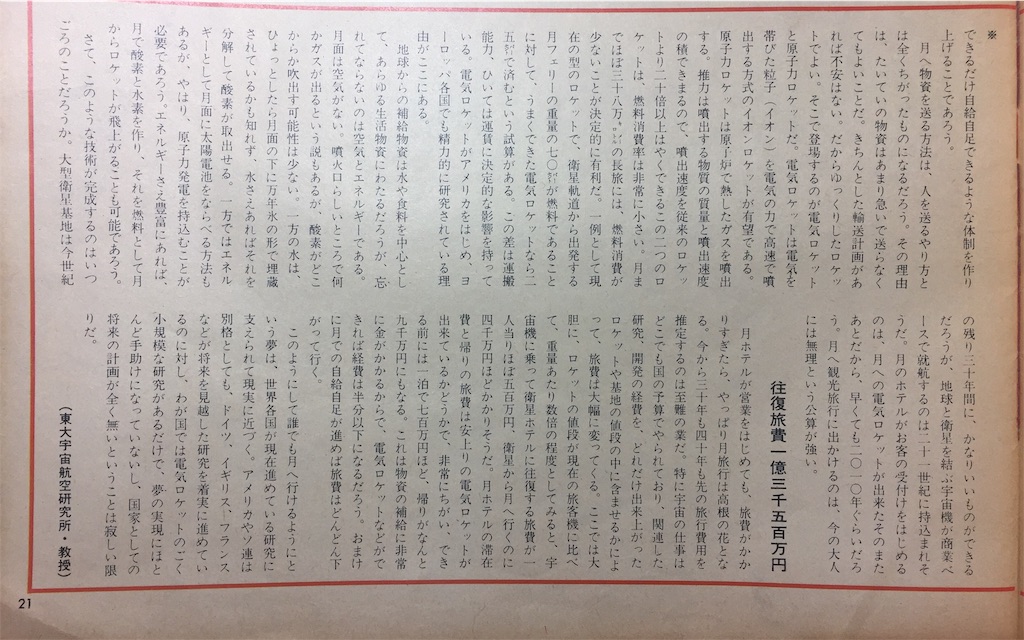 ※
できるだけ自給自足できるような体制を作り
上げることであろう。
　月へ物資を送る方法は、人を送るやり方と
は全くちがったものになるだろう。その理由
は、たいていの物資はあまり急いで送らなく
てもよいことだ。きちんとした輸送計画があ
れば不安はない。だからゆっくりしたロケッ
トでよい。そこで登場するのが電気ロケット
と原子力ロケットだ。電気ロケットは電気を
帯びた粒子（イオン）を電気の力で高速で噴
出する方式のイオンロケットが有望である。
原子力ロケットは原子炉で熱したガスを噴出
する。推力は噴出する物質の質量と噴出速度
の積できまるので、噴出速度を従来のロケッ
トより二十倍以上はやくできるこの二つのロ
ケットは、燃料消費率は非常に小さい。月ま
でほぼ三十八万㌔の長旅には、燃料消費が
少ないことが決定的に有利だ。一例として現
在の型のロケットで、衛星軌道から出発する
月フェリーの重量の七〇㌫が燃料であること
に対して、うまくできた電気ロケットなら二
五㌫で済むという試算がある。この差は運搬
能力、ひいては運賃に決定的な影響を持って
いる。電気ロケットがアメリカをはじめ、ヨ
ーロッパ各国でも精力的に研究されている理
由がここにある。
　地球からの補給物資は水や食料を中心とし
て、あらゆる生活物資にわたるだろうが、忘
れてならないのは空気とエネルギーである。
月面は空気がない。噴火口らしいところで何
かガスが出るという説もあるが、酸素がどこ
からか吹出す可能性は少ない。一方の水は、
ひょっとしたら月面の下に万年氷の形で埋蔵
されているかも知れず、水さえあればそれを
分解して酸素が取出せる。一方ではエネル
ギーとして月面に太陽電池をならべる方法も
あるが、やはり、原子力発電を持込むことが
必要であろう。エネルギーさえ豊富にあれば、
月で酸素と水素を作り、それを燃料として月
からロケットが飛上がることも可能であろう。
　さて、このような技術が完成するのはいつ
ごろのことだろうか。大型衛星基地は今世紀
の残り三十年間に、かなりいいものができる
だろうが、地球と衛星を結ぶ宇宙機が商業ベ
ースで就航するのは二十一世紀に持込まれそ
うだ。月のホテルがお客の受付けをはじめる
のは、月への電気ロケットが出来たそのまた
あとだから、早くても二〇一〇年ぐらいだろ
う。月へ観光旅行に出かけるのは、今の大人
には無理という公算が強い。
往復旅費一億三千五百万円
　月ホテルが営業をはじめても、旅費がかか
りすぎたら、やっぱり月旅行は高根の花とな
る。今から三十年も四十年も先の旅行費用を
推定するのは至難の業だ。特に宇宙の仕事は
どこでも国の予算でやられており、関連した
研究、開発の経費を、どれだけ出来上がった
ロケットや基地の値段の中に含ませるかによ
って、旅費は大幅に変ってくる。ここでは大
胆に、ロケットの値段が現在の旅客機に比べ
て、重量あたり数倍の程度としてみると、宇
宙機に乗って衛星ホテルに往復する旅費が一
人当りほぼ五百万円、衛星から月へ行くのに
四千万円ほどかかりそうだ。月ホテルの滞在
費と帰りの旅費は安上りの電気ロケットが
出来ているかどうかで、非常にちがい、でき
る前には一泊で七百万円ほど、帰りがなんと
九千万円にもなる。これは物資の補給に非常
に金がかかるからで、電気ロケットなどがで
きれば経費は半分以下になるだろう。おまけ
に月での自給自足が進めば旅費はどんどん下
がって行く。
　このようにして誰でも月へ行けるようにと
いう夢は、世界各国が現在進めている研究に
支えられて現実に近づく。アメリカやソ連は
別格としても、ドイツ、イギリス、フランス
などが将来を見越した研究を着実に進めてい
るのに対し、わが国では電気ロケットのごく
小規模な研究があるだけで、夢の実現にほと
んど手助けになっていないし、国家としての
将来の計画が全く無いということは寂しい限
りだ。
（東大宇宙航空研究所・教授）
21